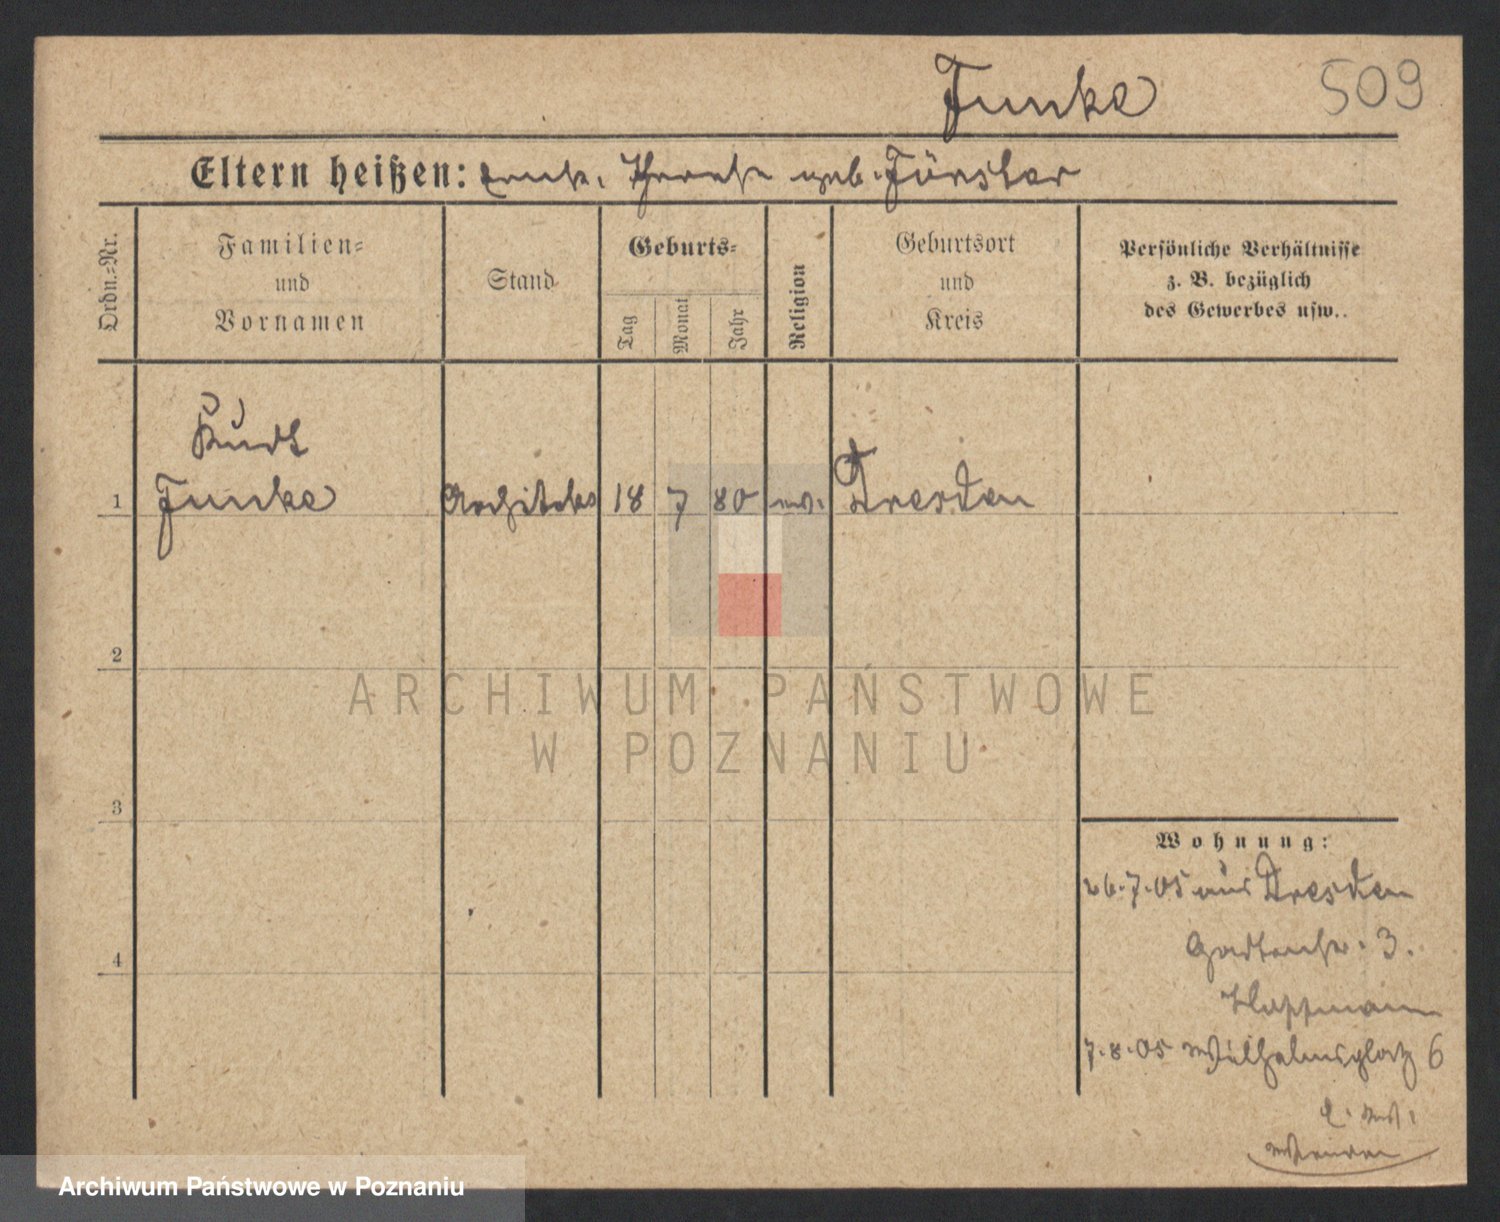 Funke 509
Eltern heißen: Ernst, Therese geb. Förster
Ordn.-Nr.
Familien-
und
Vornamen
Stand
Geburts-
Tag
Monat
Jahr
Religion
Geburtsort
und
Kreis
Persönliche Verhältnisse
z. B. bezüglich
des Gewerbes usw..
Kurt
1 Funke Architekt 18 7 80 ev. Dresden
2
3
4
ARCHIWUM PAŃSTWOWE
W POZNANIU
Wohnung:
26.7.05 aus Dresden
Gartenstr. 3.
7.8.05 Wilhelmsplatz 6
Archiwum Państwowe w Poznaniu